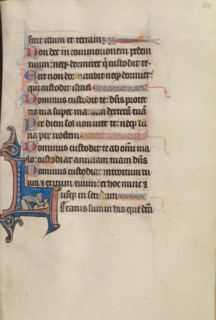 fecit celum et terram
Non det in commotionem pedem
tuum: neqz dormitet q' custodit te
Ecce non dormitabit neqz dormiet:
qui custodit israel
Dominus custodit te: dn̄s protec
tio tua super manum dexteram tuā
Per diem sol non uret te: neqz lu
na per noctem
Dominus custodit te ab omni ma
lo: custodiat animam tuam dn̄s
Dominus custodiat introitum tu
um et exitum tuum: ex hoc nunc et
usqz in seculum
Letatus sum in his que dc̄a